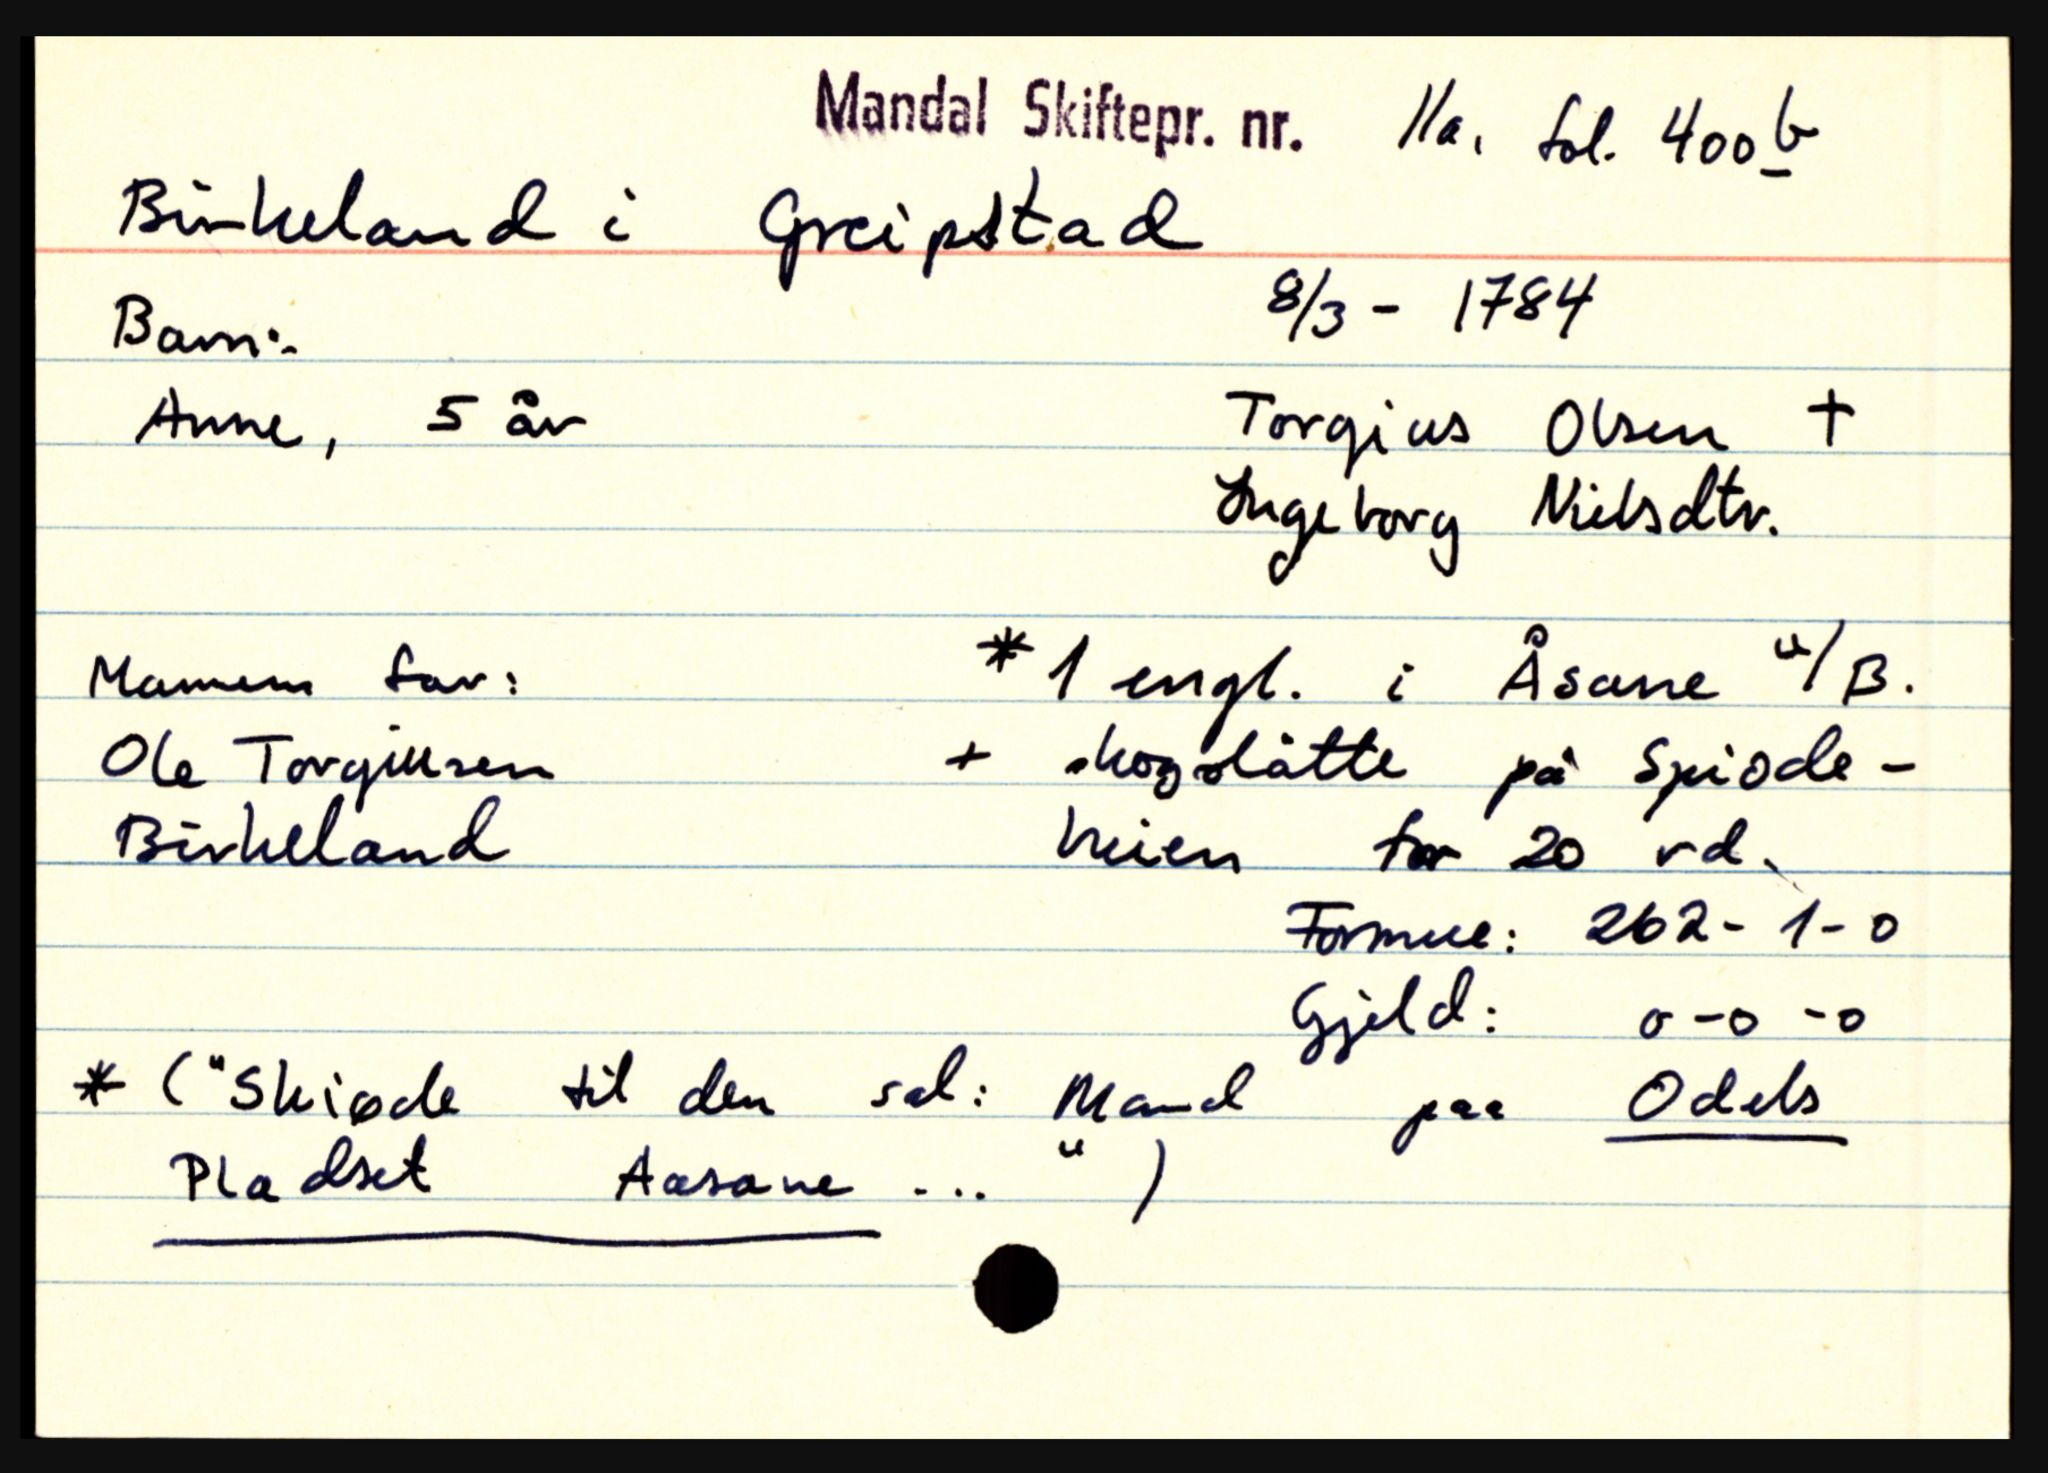 Mandal Skiftepr. nr. 11a, fol. 400b
Birkeland i Greipstad
8/3 - 1784
Barn:
Anne, 5 år
Torgius Olsen †
Ingeborg Nielsdtr.
Mannens far:
Ole Torgiussen
Birkeland
* 1 engl. i Åsane u/B.
+ skogslåtte på Spiode-
heien for 20 rd.
Formue: 262-1-0
Gjeld: 0-0-0
* ("Skiøde til den sal: Mand paa Odels
Pladset Aasane ... ")